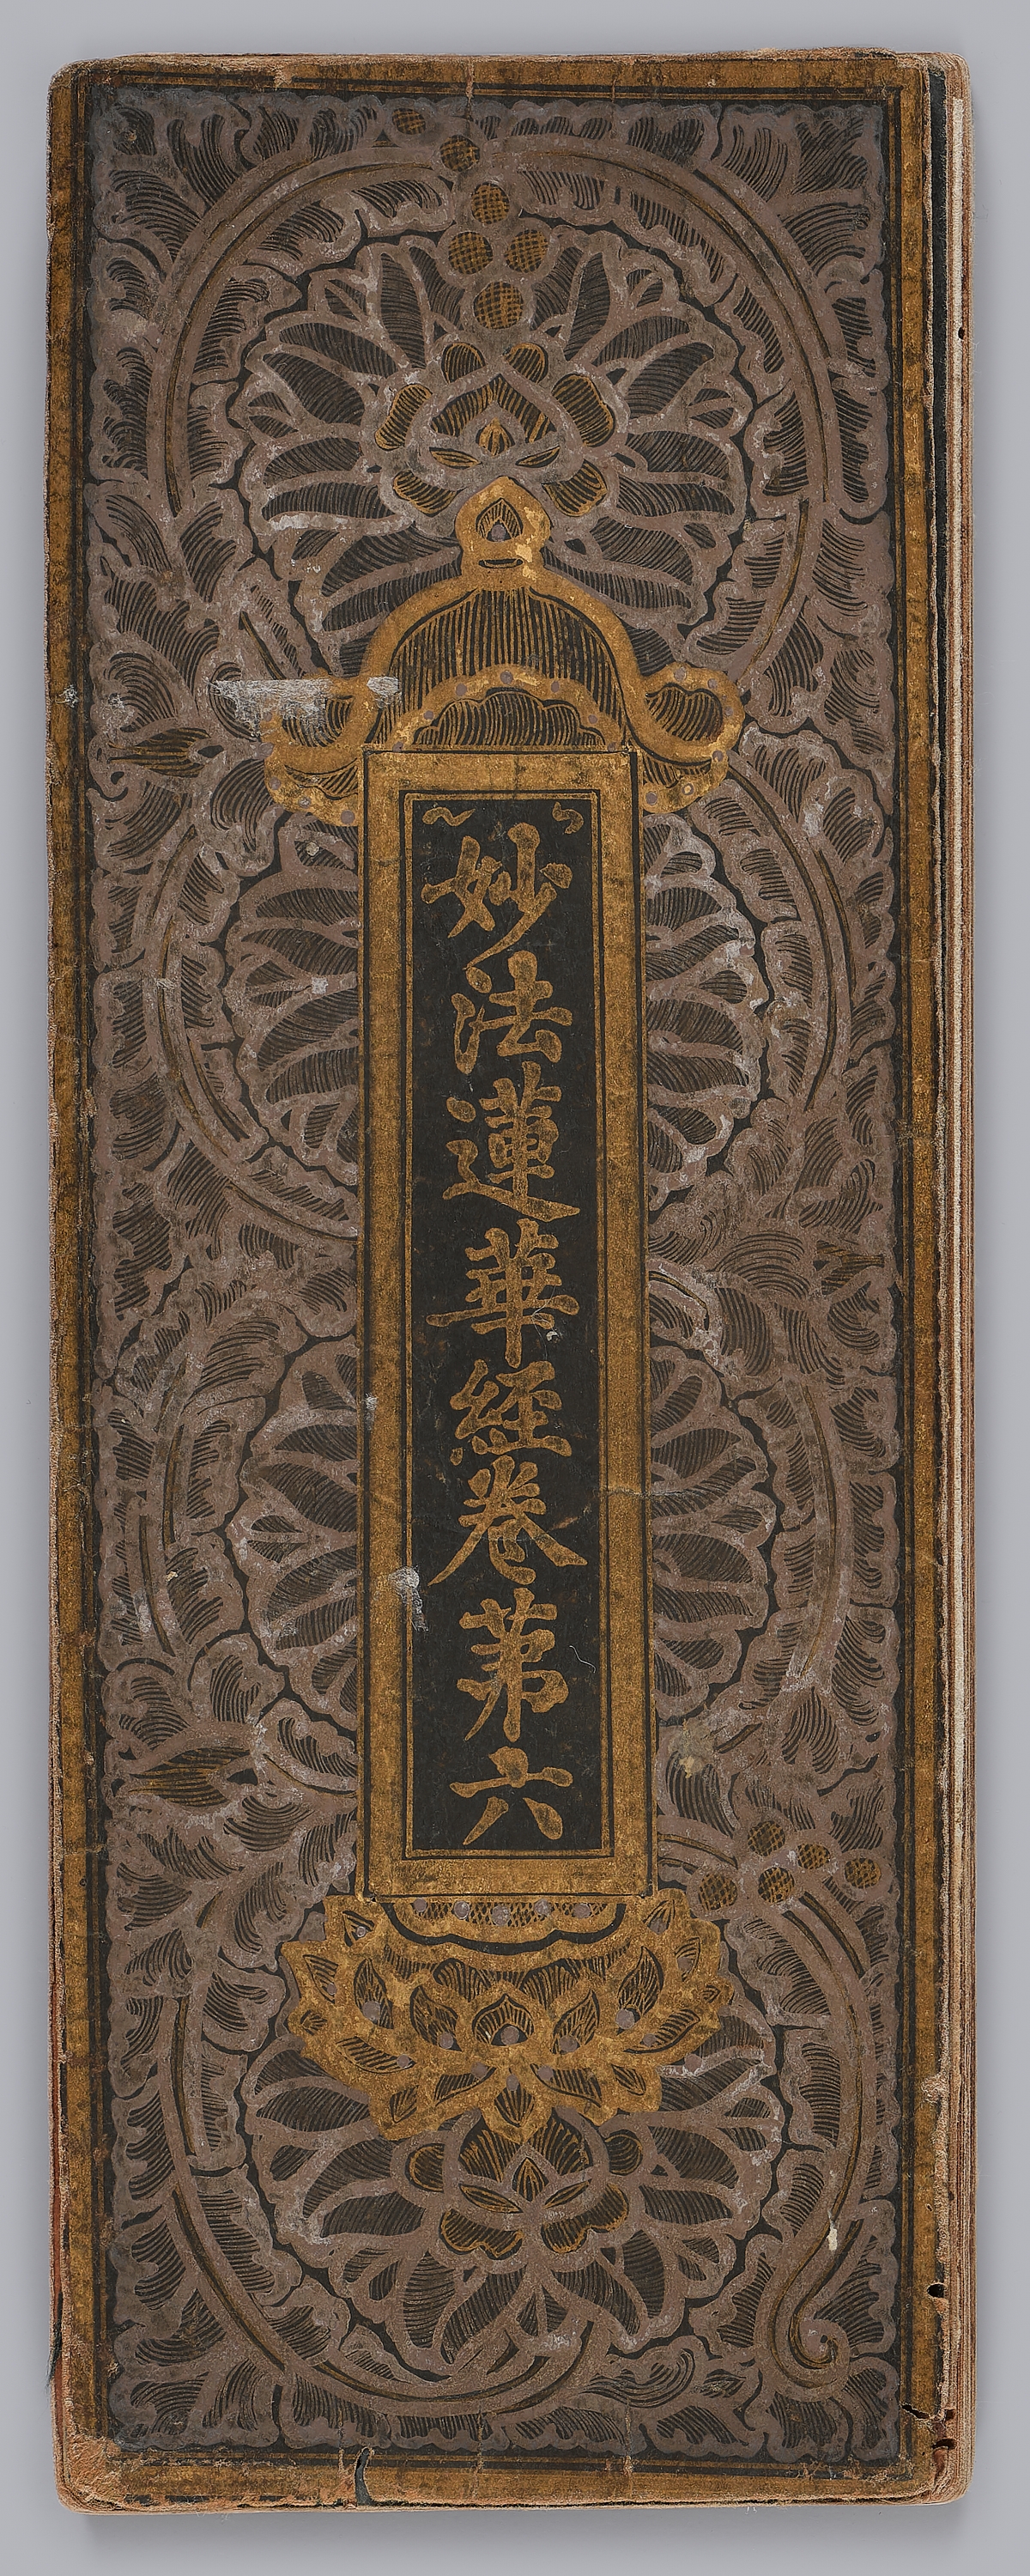 妙法蓮華經卷苐六